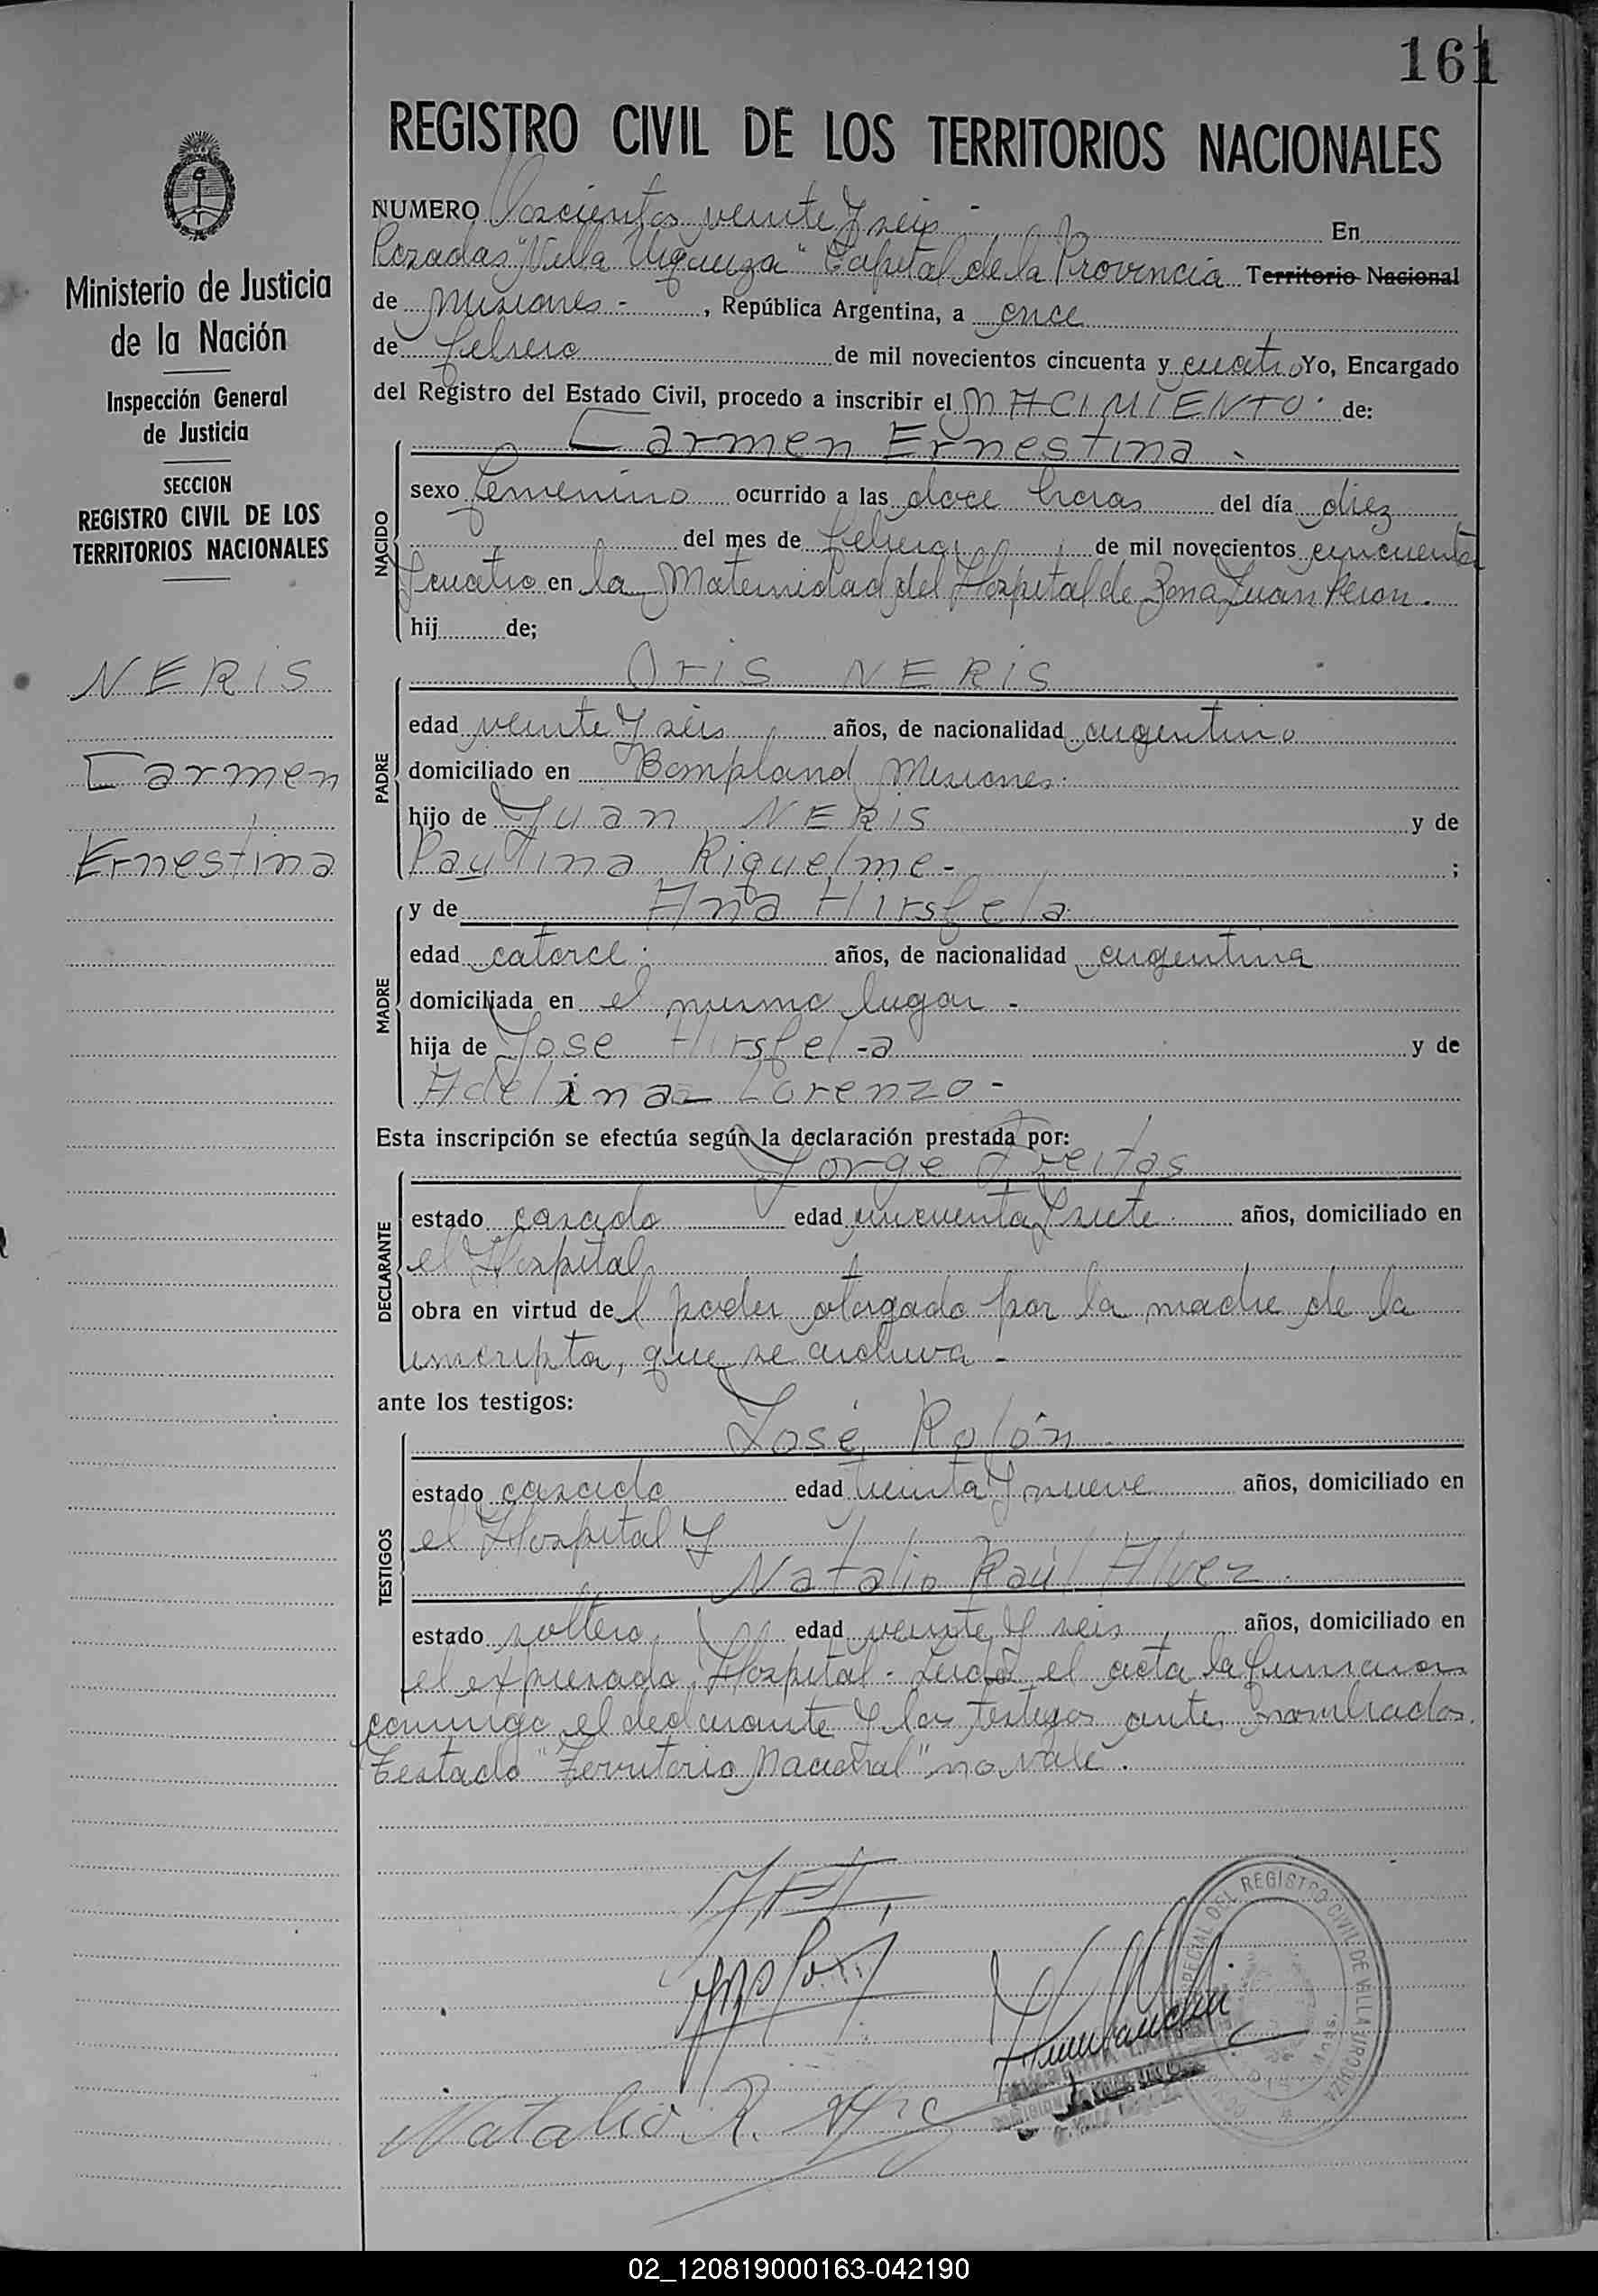 161
REGISTRO CIVIL DE LOS TERRITORIOS NACIONALES
Ministerio de Justicia
de la Nación
Inspección General
de Justicia
SECCION
REGISTRO CIVIL DE LOS
TERRITORIOS NACIONALES
NERIS
Carmen
Ernestina
NUMERO Doscientos veinte y seis - En
Posadas "Villa Urquiza" Capital de la Provincia Territorio Nacional
de Misiones - , República Argentina, a once
de febrero de mil novecientos cincuenta y cuatro Yo, Encargado
del Registro del Estado Civil, procedo a inscribir el NACIMIENTO de:
Carmen Ernestina -
NACIDO
sexo femenino ocurrido a las doce horas del día diez
del mes de febrero de mil novecientos cincuenta
y cuatro en la Maternidad del Hospital de Zona Juan Peron.
hij de;
Oris NERIS
PADRE
edad veinte y seis años, de nacionalidad argentino
domiciliado en Bompland Misiones.
hijo de Juan NERIS y de
Paulina Riquelme - ;
y de Ana Hirsfela
MADRE
edad catorce. años, de nacionalidad argentina
domiciliada en el mismo lugar -
hija de Jose Hirsfel-a y de
Adelina Lorenzo -
Esta inscripción se efectúa según la declaración prestada por:
Jorge Freitas
DECLARANTE
estado casado edad cincuenta y siete años, domiciliado en
el Hospital
obra en virtud del poder otorgado por la madre de la
inscripta, que se archiva -
ante los testigos:
José Rolón
TESTIGOS
estado casado edad treinta y nueve años, domiciliado en
el Hospital y
Natalio Raúl Alvez.
estado soltero edad veinte y seis años, domiciliado en
el expresado Hospital - Leida el acta la firmaron
conmigo el declarante y los testigos antes nombrados.
Testado "Territorio Nacional" no vale.
Natalio R.
DEL REGISTRO CIVIL DE VILLA URQUIZA
02_120819000163-042190